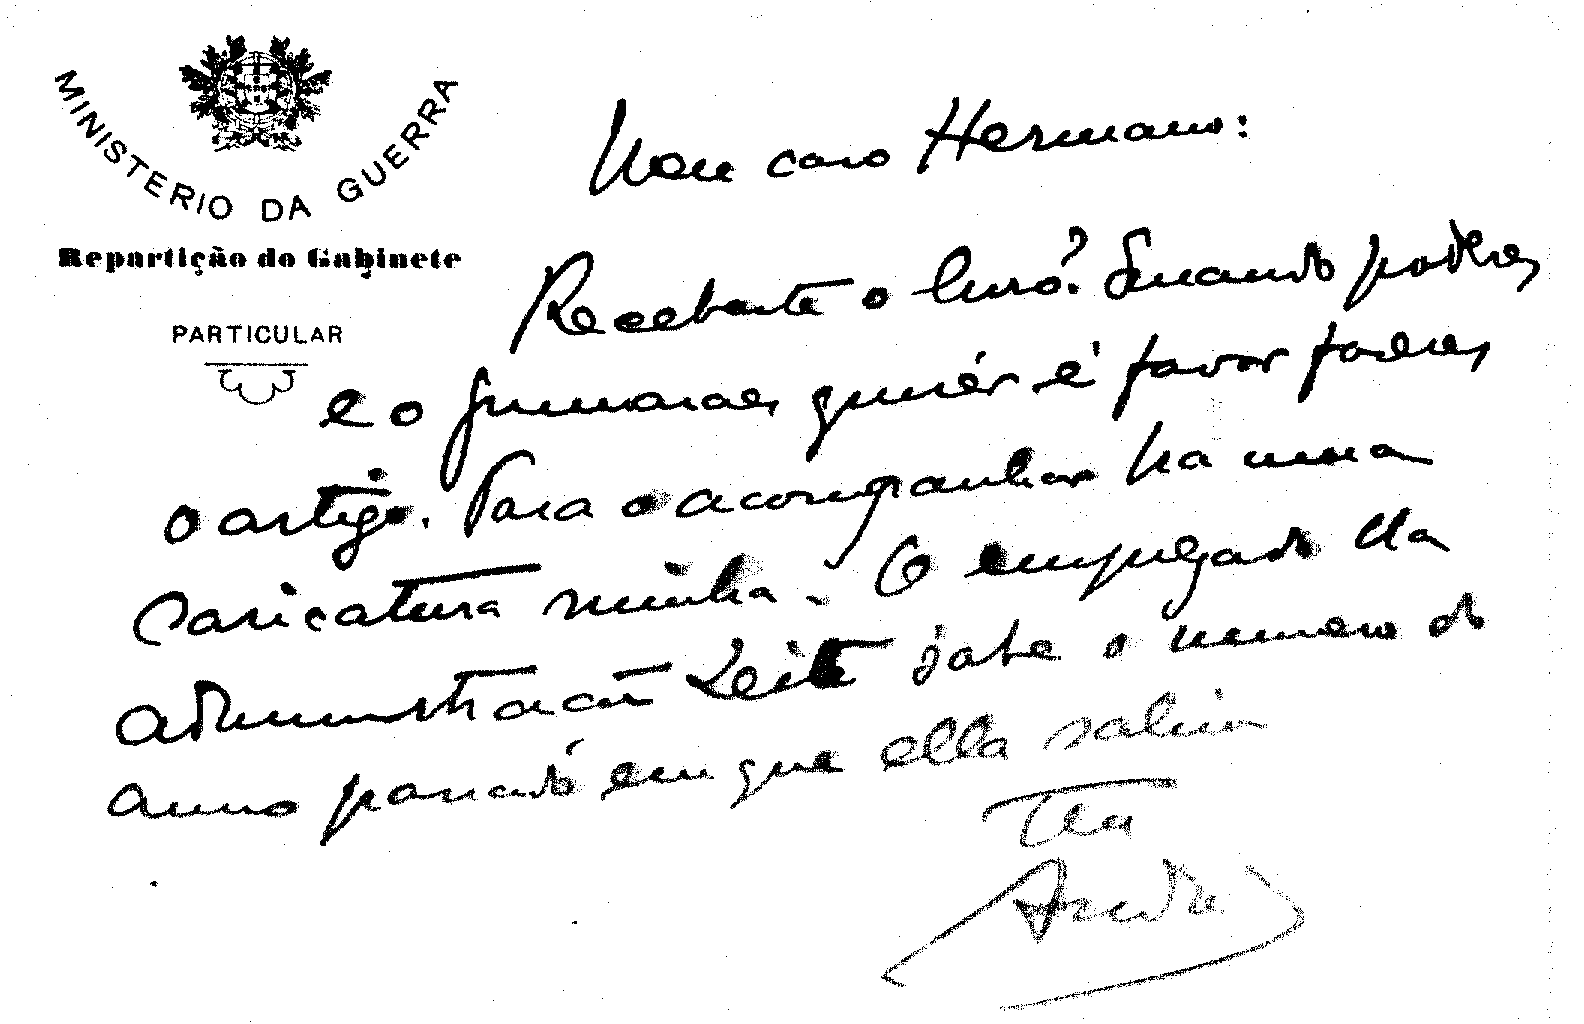 MINISTERIO DA GUERRA
Repartição do Gabinete
PARTICULAR
Meu caro Hermano:
Recebeste o livro? Quando poderes
e o Guimarães quizér é favor fazeres
o artigo. Para o acompanhar ha uma
caricatura minha. O empregado da
administração Leite sabe o numero do
anno passado em que ella sahiu
Teu
André